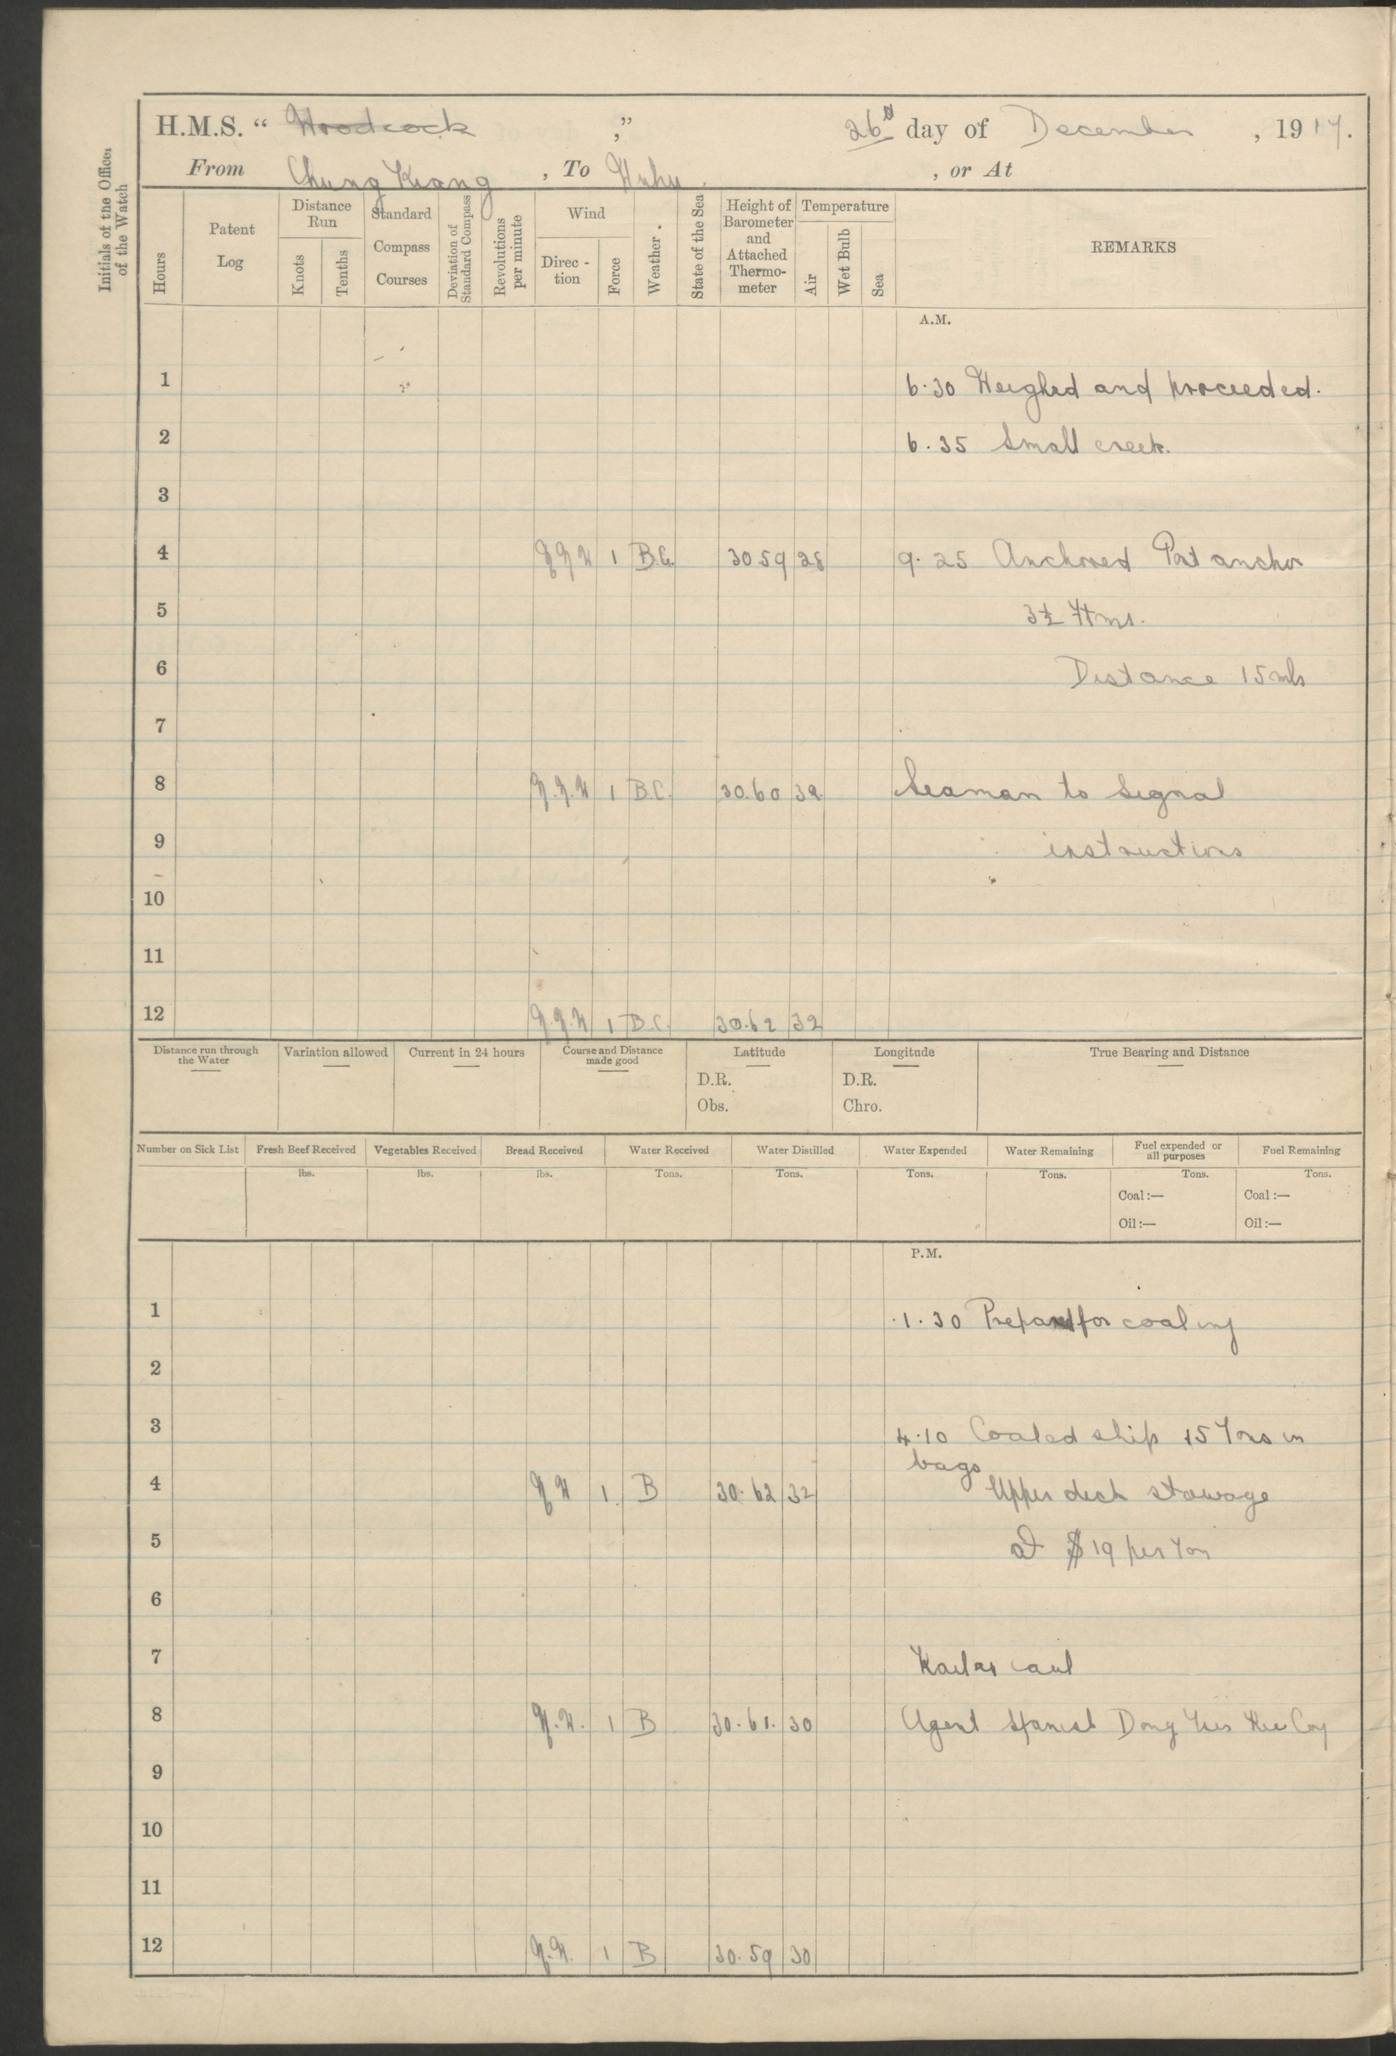 H.M.S. “ Woodcock ,” 26th day of December , 1917.
From Chung Kiang , To Wuhu , or At
Initials of the Officer of the Watch
Hours
Patent Log
Distance Run
Knots
Tenths
Standard Compass Courses
Deviation of Standard Compass
Revolutions per minute
Wind
Direc - tion
Force
Weather .
State of the Sea
Height of Barometer and Attached Thermo- meter
Temperature
Air
Wet Bulb
Sea
REMARKS
A.M.
1 6.30 Weighed and proceeded.
2 6.35 Small creek.
3
4 1 B.C. 30 59 28 9.25 Anchored Port anchor
5 3½ Fms.
6 Distance 15 mls
7
8 N.N.W 1 B.C. 30.60 32 Seaman to Signal
9 instructions
10
11
12 N.N.W 1 B.C. 30.62 32
Distance run through the Water
Variation allowed
Current in 24 hours
Course and Distance made good
Latitude
D.R.
Obs.
Longitude
D.R.
Chro.
True Bearing and Distance
Number on Sick List
Fresh Beef Received
lbs.
Vegetables Received
lbs.
Bread Received
lbs.
Water Received
Tons.
Water Distilled
Tons.
Water Expended
Tons.
Water Remaining
Tons.
Fuel expended or all purposes
Tons.
Coal :—
Oil :—
Fuel Remaining
Tons.
Coal :—
Oil :—
P.M.
1 1.30 for coaling
2
3 4.10 Coaled ship 15 Tons in
bags
4 NW 1 B 30.62 32 Upper deck stowage
5 at $19 per Ton
6
7
8 N.W. 1 B 30.61. 30 Agent Dong Coy
9
10
11
12 N.W. 1 B 30.59 30